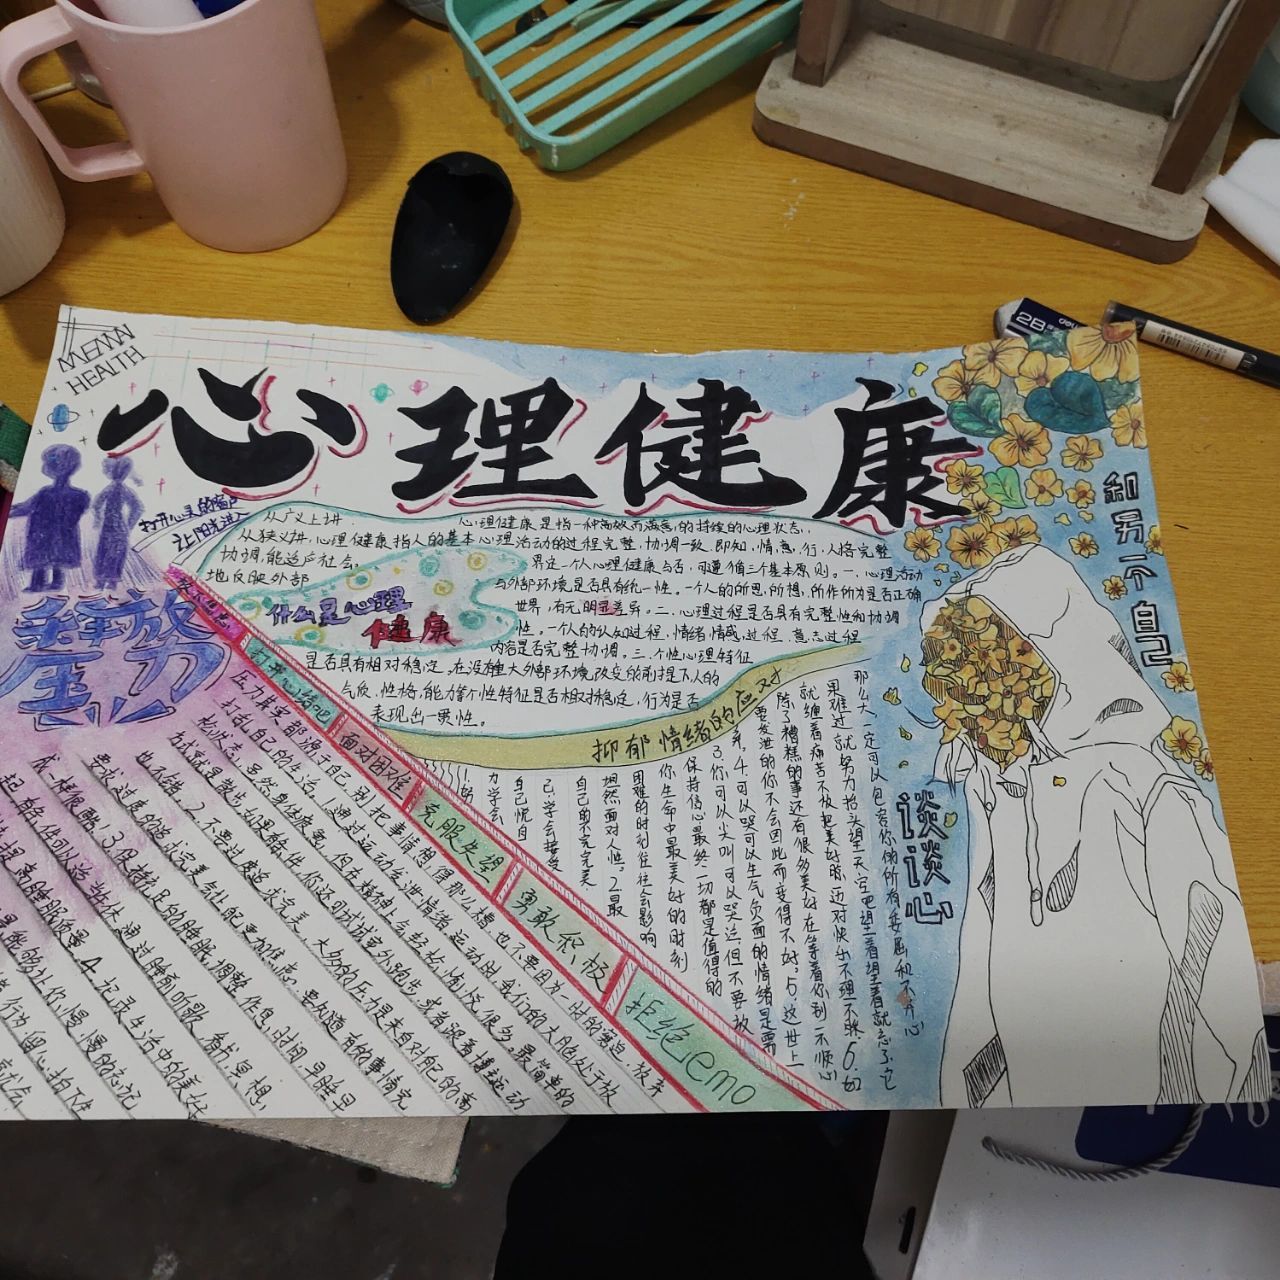 MENTAL
HEALTH
心理健康
打开心灵的窗户
让阳光进入
释放
压力
什么是心理
健康
从广义上讲,心理健康是指一种高效而满意的持续的心理状态,
从狭义讲,心理健康指人的基本心理活动的过程完整,协调一致,即知,情,意,行,人格完整
协调,能适应社会。界定一个人心理健康与否,可遵循三个基本原则。一、心理活动
与外部环境是否具有统一性。一个人的所思,所想,所作所为是否正确
地反映外部世界,有无明显差异。二、心理过程是否具有完整性和协调
性。一个人的认知过程,情绪情感过程,意志过程
内容是否完整协调。三、个性心理特征
是否具有相对稳定,在没有重大外部环境改变的前提下人的
气质,性格,能力等个性特征是否相对稳定,行为是否
表现出一致性。
抑郁情绪的应对
打开心结吧
面对困难
克服失望
勇敢积极
拒绝emo
和另一个自己
谈谈心
力学会
自己忧自
己,学会接受
自己的不完完美
坦然面对人性。2.最
困难的时刻往往会影响
你生命中最美好的时刻
保持信心最终一切都是值得的
3.你可以尖叫可以哭泣但不要放
弃。4.可以哭可以生气负面的情绪是需
要发泄的你不会因此而变得不好。5.这世上
除了糟糕的事还有很多美好在等着你别一不顺心
就缠着痛苦不板把美好撕迈对快乐不理不睬6.如
果难过就努力抬头望天空吧望着望着就忘了,它
那么大一定可以包容你的所有委屈和不开心
压力其实都源于自己,别把事情想得那么糟,也不要因为一时的窘迫,放弃
打乱自己的生活。1.通过运动发泄情绪运动时,我们的大脑处于放
松状态,虽然身体疲惫,但在精神上气轻松,愉悦很多。最简单的
方式就是散步,如果有条件,你还可试试室外跑步,或者跟着博主运动
也不错。2.不要过度追求完美,大多的压力是来自对自己的高
要求,过度的追求完美会让服更加焦虑。要知道,有的事情完
成一样很酷。3.保持充足的睡眠,调整作息,时间,早睡早
起,有条件可以适当休,通过睡前听歌,看书,冥想,
提高睡眠质量。4.记录生活中的美好
是能够让你,慢,慢的忘记
行为,留心,拍下生